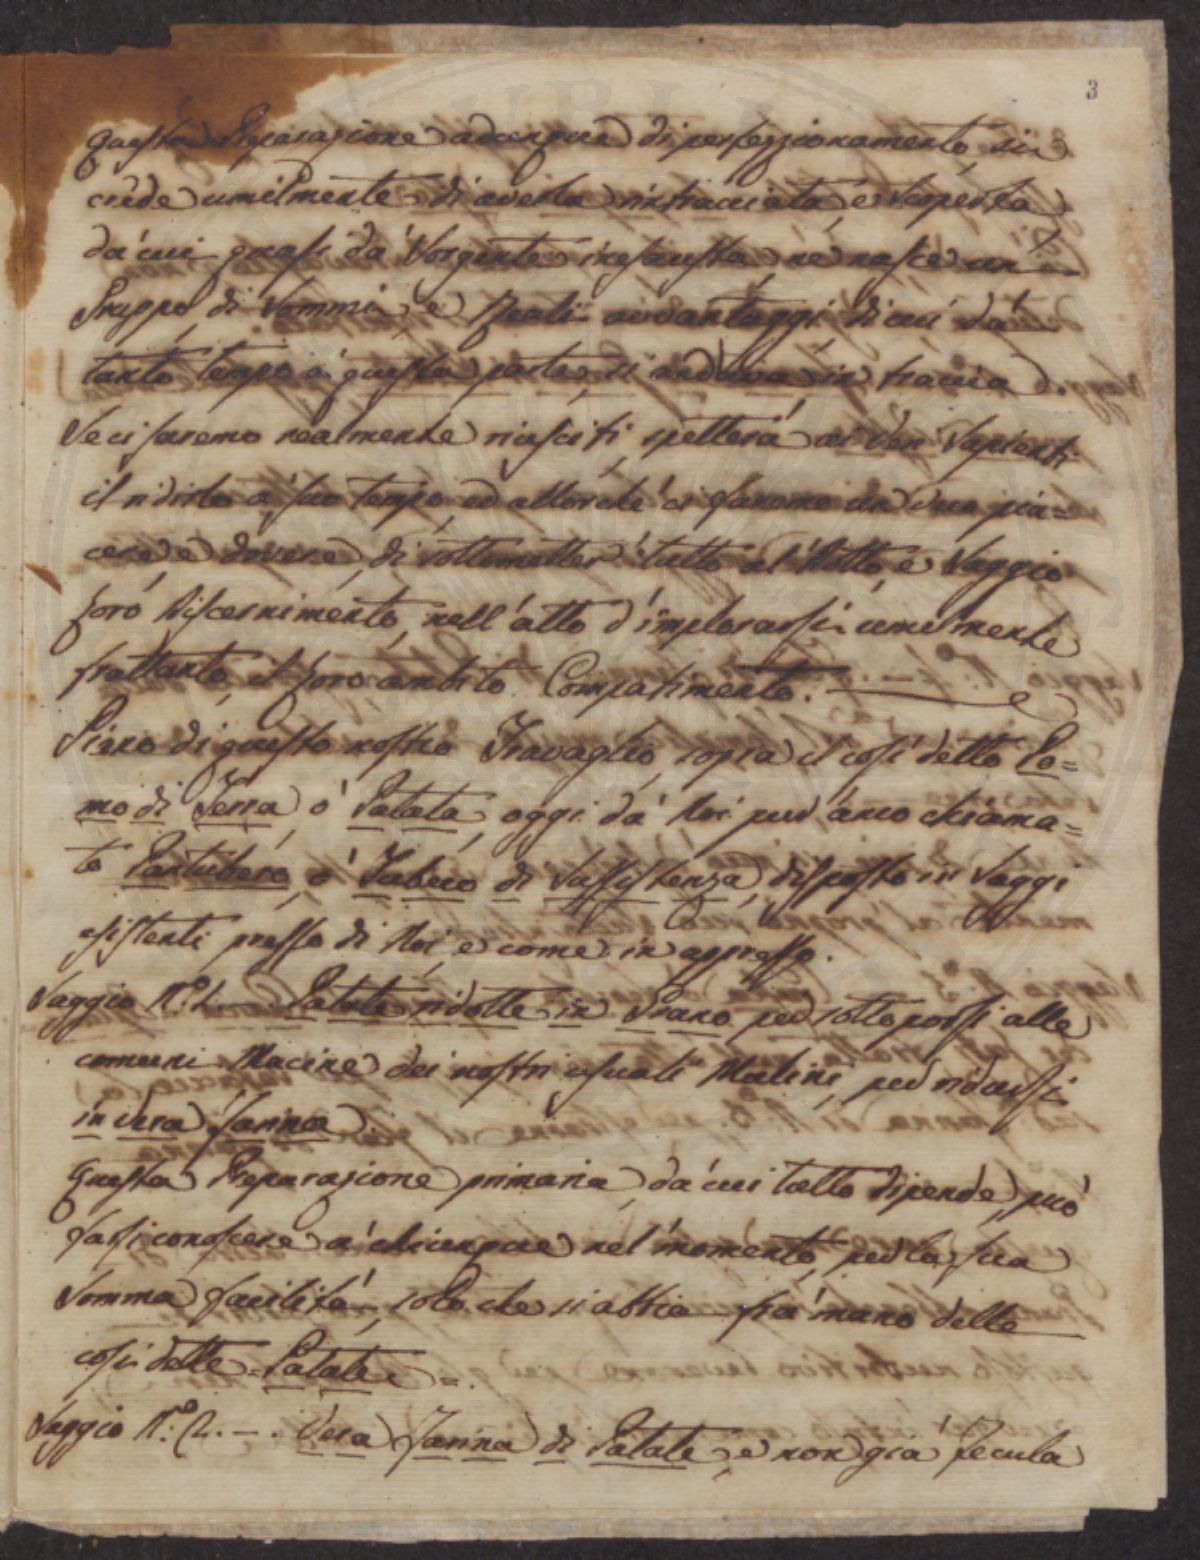 3
Questa Preparazione adunque di perfezzionamento si
crede umilmente di averla rintracciata, e scoperta
da cui quasi da Sorgente inesausta ne nasce un
Gruppo di Sommi, e Reali avvantaggi di cui da
tanto tempo à questa parte si andava in traccia
Se ci saremo realmente riusciti, spetterà ai Veri Sapienti
il ridirlo a suo tempo, ed allorché ci faremo un vero pia=
cere e dovere di sottometter tutto al Dotto, e Saggio
loro discernimento, nell'atto d'implorarsi umilmente
frattanto il loro ambito Compatimento.
Piano di questo nostro Travaglio sopra il così detto Po=
mo di Terra ò Patata, oggi da Noi pur anco chiama=
to Pantubero, ò Tubero di Sussistenza, disposto in Saggi
esistenti presso di Noi, e come in appresso.
Saggio N.º 1. Patate ridotte in Grano per sottoporsi alle
comuni Macine dei nostri usuali Mulini, per ridursi
in vera Farina.
Questa Preparazione primaria, da cui tutto dipende, può
farsi conoscere a chicunque nel momento, per la sua
Somma facilità, solo che si abbia frà mano delle
così dette = Patate = .
Saggio N.º 2. — . Vera Farina di Patate, e non già Fecula